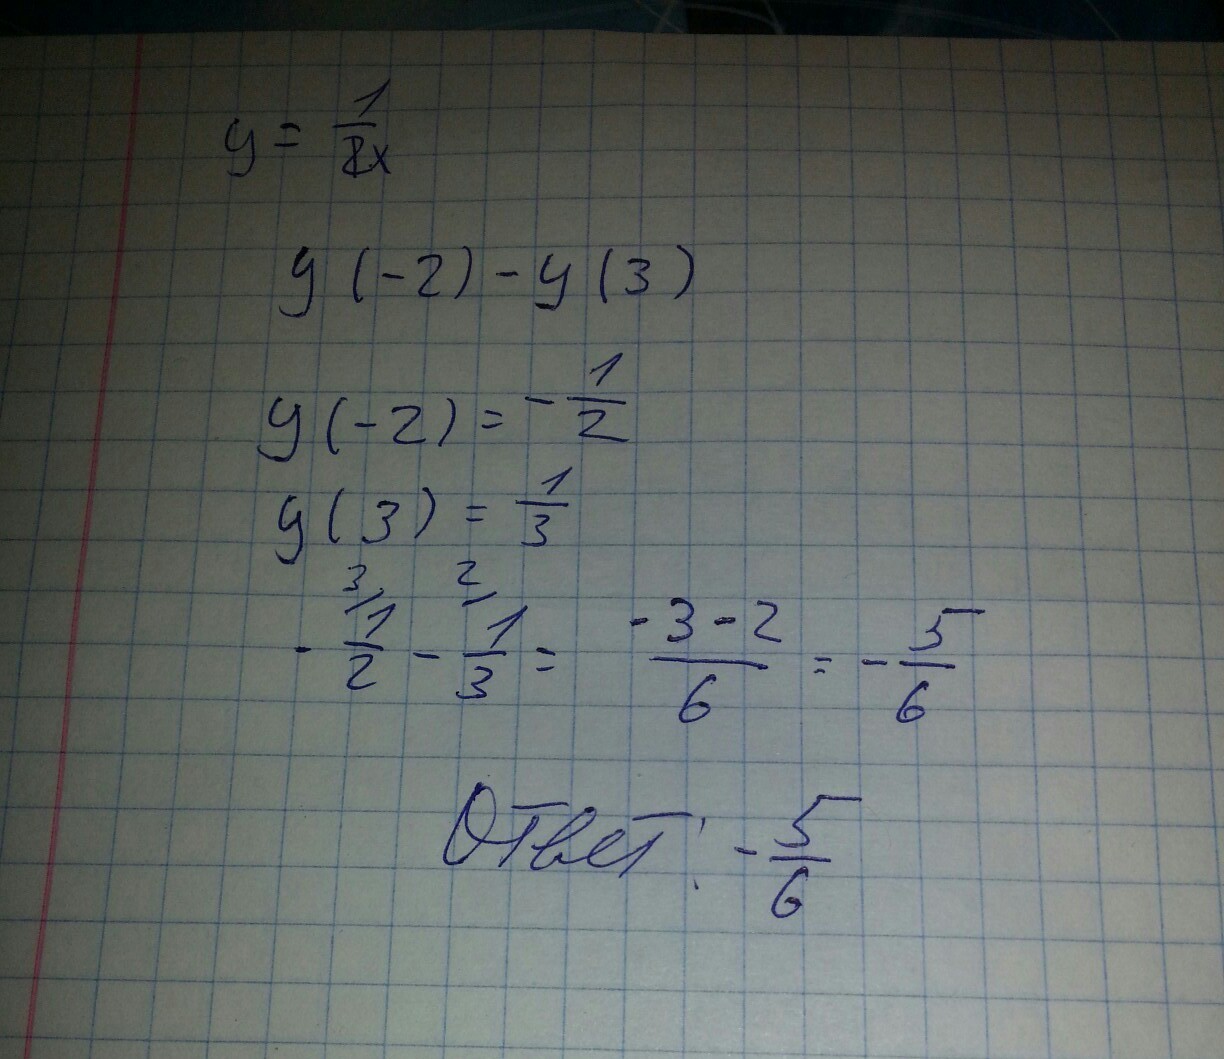 y = 1/x
y(-2) - y(3)
y(-2) = - 1/2
y(3) = 1/3
- ³⁄1/2 - ²⁄1/3 = (-3-2)/6 = - 5/6
Ответ: - 5/6